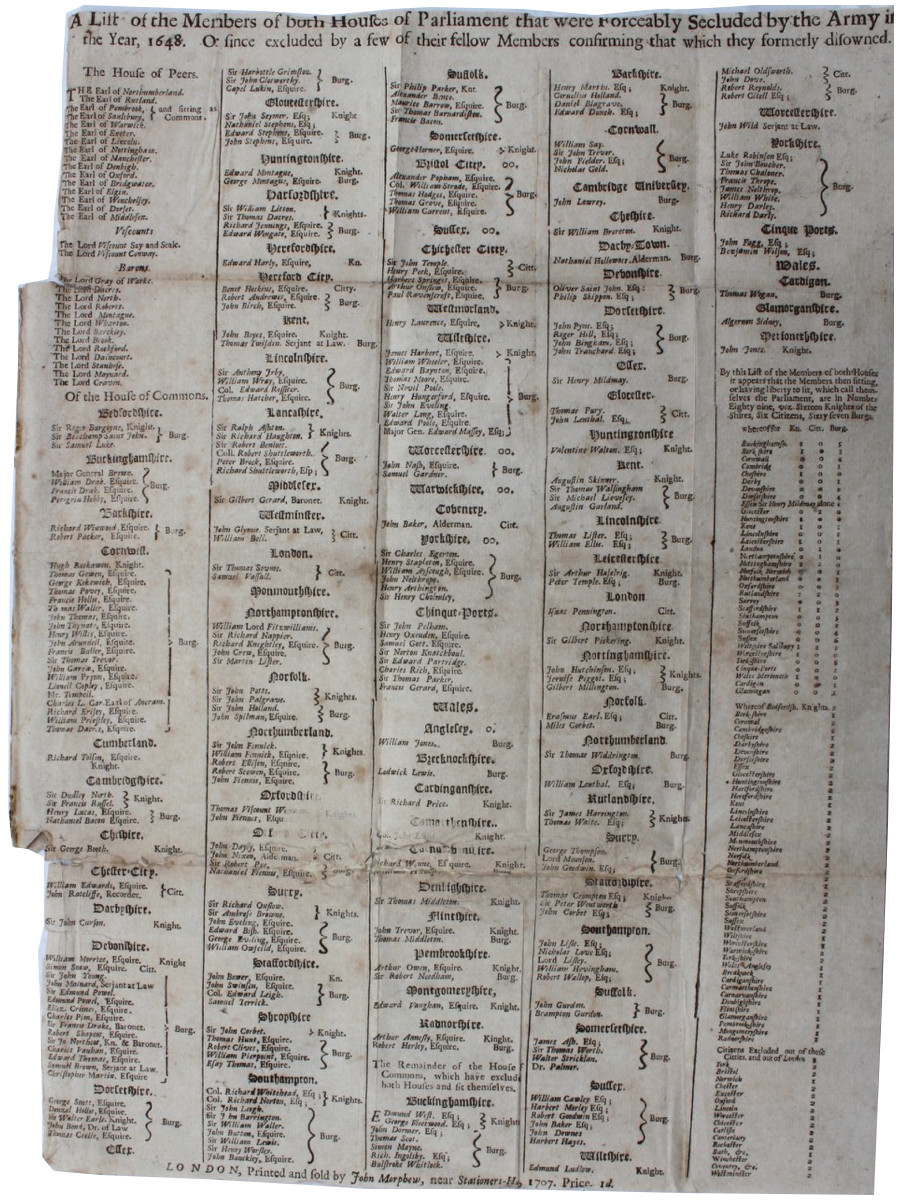 A List of the Members of both Houses of Parliament that were Forceably Secluded by the Army in
the Year, 1648. Or since excluded by a few of their fellow Members confirming that which they formerly disowned.
The House of Peers.
THE Earl of Northumberland.
The Earl of Rutland.
The Earl of Pembrook, and sitting as
The Earl of Saulsbury, Commons.
The Earl of Warwick.
The Earl of Exeter.
The Earl of Lincoln.
The Earl of Nottingham.
The Earl of Manchester.
The Earl of Denbigh.
The Earl of Oxford.
The Earl of Bridgwater.
The Earl of Elgin.
The Earl of Winchelsey.
The Earl of Dorset.
The Earl of Middlesex.
Viscounts
The Lord Viscount Say and Seale.
The Lord Viscount Conway.
Barons.
The Lord Gray of Warke.
The Lord Dacres.
The Lord North.
The Lord Roberts.
The Lord Montague.
The Lord Wharton.
The Lord Berckley.
The Lord Brook.
The Lord Rochford.
The Lord Daincourt.
The Lord Stanhope.
The Lord Maynard.
The Lord Craven.
Of the House of Commons.
Bedfordshire.
Sir Roger Burgoyne, Knight.
Sir Beauchamp Saint John. Burg.
Sir Samuel Luke.
Buckinghamshire.
Major General Brown.
William Drak. Esquire. Burg.
Francis Drak. Esquire.
Peregrin Hobby, Esquire.
Barkshire.
Richard Winwood, Esquire. Burg.
Robert Packer, Esquire.
Cornwell.
Hugh Buskawen, Knight.
Thomas Gewen, Esquire.
George Kekewich, Esquire.
Thomas Povey, Esquire.
Francis Hollis, Esquire.
Thomas Waller, Esquire.
John Thomas, Esquire.
John Thynate, Esquire.
Henry Willis, Esquire.
John Arundell, Esquire. Burg.
Francis Buller, Esquire.
Sir Thomas Trevor.
John Carew, Esquire.
William Prynn, Esquire.
Lionell Copley, Esquire.
Mr. Timpell.
Charles L. Car Earl of Ancram.
Richard Erisey, Esquire.
William Priestley, Esquire.
Thomas Dacres, Esquire.
Cumberland.
Richard Tolson, Esquire.
Knight.
Cambridgshire.
Sir Dudley North. Knight.
Sir Francis Russel.
Henry Lucas, Esquire. Burg.
Nathaniel Bacon Esquire.
Cheshire.
Sir George Booth. Knight.
Chester-City.
William Edwards, Esquire. Citt.
John Ratcliffe, Recorder.
Darbyshire.
Sir John Curson. Knight.
Devonshire.
William Morrice, Esquire. Knight
Simon Snow, Esquire. Citt.
Sir John Young.
John Mainard, Serjant at Law
Sir Edmund Powel.
Edmund Powel, Esquire.
Ellex. Crimes, Esquire.
Charles Pim, Esquire.
Sir Francis Drake, Baronet. Burg.
Robert Shapcot, Esquire.
Sir Jo Northcot, Kn. & Baronet.
Charles Vauhan, Esquire.
Edward Thomas, Esquire.
Samuel Brown, Serjant at Law.
Christopher Martin, Esquire.
Dorsetshire.
George Scutt, Esquire.
Denzel Hollis, Esquire.
Sir Walter Earle. Knight. Burg.
John Bond, Dr. of Law
Thomas Ceelie, Esquire.
Essex.
Sir Harbottle Grimston.
Sir John Clotworthy. Burg.
Capel Lukin, Esquire.
Gloucestershire.
Sir John Seymer. Esq; Knight
Nathaniel Stephens, Esq;
Edward Stephens, Esquire. Burg.
John Stephens, Esquire.
Huntingtonshire.
Edward Montague, Knight.
George Montague, Esquire. Burg.
Hartfordshire.
Sir William Litton. Knights.
Sir Thomas Dacres.
Richard Jennings, Esquire. Burg.
Edward Wingate, Esquire.
Herefordshire.
Edward Harly, Esquire, Kn.
Hereford City.
Bennt Hoskins, Esquire. Citty.
Robert Andrewes, Esquire. Burg.
John Birch, Esquire.
Kent.
John Boyes, Esquire. Knight.
Thomas Twisden. Serjant at Law. Burg.
Lincolnshire.
Sir Anthony Irby.
William Wray, Esquire. Burg.
Col. Edward Rossiter.
Thomas Hatcher, Esquire.
Lancashire.
Sir Ralph Ashton. Knights.
Sir Richard Haughton.
Sir Robert Benlos.
Coll. Robert Shuttleworth. Burg.
Peter Brook, Esquire.
Richard Shuttleworth, Esq;
Middlesex.
Sir Gilbert Gerard, Baronet. Knight.
Westminster.
John Glynne. Serjant at Law, Citt.
William Bell.
London.
Sir Thomas Soums. Citt.
Samuel Vassall.
Monmouthshire.
Northamptonshire.
William Lord Fitzwilliams.
Sir Richard Nappier.
Richard Knightley, Esquire. Burg.
John Crew, Esquire.
Sir Martin Lister.
Norfolk.
Sir John Potts. Knights.
Sir John Palgrave.
Sir John Holland. Burg.
John Spilman, Esquire.
Northumberland.
Sir John Fennick. Knights
William Fennick, Esquire.
Robert Ellison, Esquire. Burg.
Robert Scowen, Esquire.
John Fiennis, Esquire.
Oxfordshire.
Thomas Viscount
John Fiennes, Esqu
Oxford City.
John Doyly, Esquire.
John Nixon, Alderman. Citt.
Sir Robert Pye. Burg.
Nathaniel Fiennis, Esquire.
Surry.
Sir Richard Onslow. Knights.
Sir Ambrose Browne.
John Eveling, Esquire.
Edward Bish. Esquire. Burg.
George Eveling, Esquire.
William Owfeild, Esquire.
Staffordshire.
John Bower, Esquire. Kn.
John Swinfen, Esquire.
Col. Edward Leigh. Burg.
Samuel Terrick.
Shropshire
Sir John Corbet. Knight.
Thomas Hunt, Esquire.
Robert Cliver, Esquire. Burg.
William Pierpoint, Esquire.
Esay Thomas, Esquire.
Southampton.
Col. Richard Whitehead, Esq; Knights.
Col. Richard Norton, Esq;
Sir John Leigh.
Sir John Barrington.
Sir William Waller.
John Button, Esquire. Burg.
Sir William Lewis.
Sir Henry Worsley.
John Bunckley, Esquire.
Suffolk.
Sir Philip Parker, Knt.
Alexander Bence.
Maurice Barrow, Esquire. Burg.
Sir Thomas Barnardiston.
Francis Bacon.
Somersetshire.
George Horner, Esquire. Knight.
Bristol Citty. 00.
Alexander Popham, Esquire.
Col. William Strode, Esquire.
Thomas Hodges, Esquire. Burg.
Thomas Grove, Esquire.
William Carrent, Esquire.
Sussex. 00.
Chichester Citty.
Sir John Temple. Citt.
Henry Peck, Esquire.
Harbert Springet, Esquire.
Arthur Onslow, Esquire. Burg.
Paul Ravenscroft, Esquire.
Westmorland.
Henry Laurence, Esquire, Knight.
Wiltshire.
James Harbert, Esquire. Knight.
William Wheeler, Esquire.
Edward Baynton, Esquire.
Thomas Moore, Esquire.
Sir Nevill Poole.
Henry Hungerford, Esquire. Burg.
Sir John Eveling.
Walter Long, Esquire.
Edward Poole, Esquire.
Major Gen. Edward Massey, Esq;
Worcestershire. 00.
John Nash, Burg.
Samuel Gardner.
Warwickshire, 00.
Coventry.
John Baker, Alderman. Citt.
Yorkshire. 00.
Sir Charles Egerton.
Henry Stapleton, Esquire.
William Ayscough, Esquire. Burg.
John Nelthrope.
Henry Arthington.
Sir Henry Cholmley,
Chinque-Ports.
Sir John Pelham.
Henry Oxenden, Esquire.
Samuel Gott. Esquire.
Sir Norton Knatchboul.
Sir Edward Partridge.
Charles Rich, Esquire.
Sir Thomas Parker.
Francis Gerard, Esquire.
Wales.
Anglesey. 0.
William Jones. Burg.
Brecknockshire.
Lodwick Lewis. Burg.
Cardinganshire.
Sir Richard Price. Knight.
Camarthenshire.
Knight.
Richard Winne, Esquire. Knight.
Denbighshire.
Sir Thomas Middleton. Knight.
Flintshire.
John Trevor, Esquire. Knight.
Thomas Middleton. Burg.
Pembrookshire.
Arthur Owen, Esquire. Knight.
Sir Robert Needham. Burg.
Montgomershire,
Edward Vaughan, Esquire. Knight.
Radnorshire.
Arthur Annesly, Esquire. Kinght.
Robert Herley, Esquire. Burg.
The Remainder of the House of
Commons, which have exclud
both Houses and sit themselves.
Buckinghamshire.
Edmond West. Esq; Knight
George Fleetwood. Esq;
John Dormer. Esq;
Thomas Scot.
Simon Mayne. Burg.
Rich. Ingolsby. Esq;
Bulstrode Whitlock.
Barkshire.
Henry Martin. Esq; Knight.
Cornelius Holland.
Daniel Blagrave. Burg.
Edward Dunch. Esq;
Cornwall.
William Say.
Sir John Trevor.
John Fielder. Esq; Burg.
Nicholas Gold.
Cambridge University.
John Lowrey. Burg.
Cheshire.
Sir William Brereton. Knight.
Darby-Town.
Nathaniel Hollowes. Alderman. Burg.
Devonshire.
Oliver Saint John. Esq: Burg.
Philip Skippon, Esq;
Dorsetshire.
John Pyne. Esq;
Roger Hill, Esq;
John Bingham, Esq; Burg.
John Tranchard. Esq;
Essex.
Sir Henry Mildmay. Burg.
Gloester.
Thomas Pury. Citt.
John Lenthal, Esq;
Huntingtonshire
Valentine Walton, Esq; Knight.
Kent.
Augustin Skinner. Knight.
Sir Thomas Walsingham
Sir Michael Lievesey. Burg.
Augustin Garland.
Lincolnshire.
Thomas Lister. Esq; Burg.
William Ellis. Esq;
Leicestershire
Sir Arthur Haislrig. Knight.
Peter Temple. Esq; Burg.
London
Isaac Pennington. Citt.
Northamptonshire
Sir Gilbert Pickering. Knight.
Nottinghamshire.
John Hutchinson. Esq; Knights.
Jervisse Piggot. Esq;
Gilbert Millington. Burg.
Norfolk
Erasmus Earl. Esq; Citt.
Miles Corbet. Burg.
Northumberland.
Sir Thomas Widdrington. Burg.
Oxfordshire.
William Lenthal. Esq; Burg.
Rutlandshire.
Sir James Harrington. Knights.
Thomas Waite. Esq;
Surry.
George Thompson.
Lord Mounson. Burg.
John Goodwin. Esq;
Staffordshire.
Thomas Crompton Esq; Knight
Sir Peter Wentworth Burg.
John Corbet Esq;
Southampton.
John Lisle. Esq;
Nicholas Love Esq;
Lord Lisley. Burg.
William Hevingham.
Robert Wallop, Esq;
Suffolk.
John Gurdon. Burg.
Brampton Gurdon.
Somersetshire.
James Ash. Esq;
Sir Thomas Worth. Burg.
Walter Stricklan.
Dr. Palmer.
Sussex.
William Cawley Esq;
Harbert Morley Esq;
Robert Goodwin Esq; Burg.
John Baker Esq;
John Downes
Harbert Hayes.
Wiltshire.
Edmund Ludlow. Knight.
Michael Oldsworth. Citt.
John Dove.
Robert Reynolds. Burg.
Robert Citell Esq;
Worcestershire.
John Wild Serjant at Law.
Yorkshire.
Luke Robinson Esq;
Sir John Boucher.
Thomas Chaloner.
Francis Thorpe. Burg.
James Nelthrop.
William White.
Henry Darley.
Richard Darly.
Cinque Ports.
John Fagg, Esq;
Benjamin Weston, Esq;
Wales.
Cardigan.
Thomas Wogan, Burg.
Glamorganshire.
Algernon Sidney, Burg.
Merionethshire.
John Jones. Knight.
By this List of the Members of both Houses
it appears that the Members then sitting,
or having liberty to sit, which call themselves
the Parliament, are in Number
Eighty nine, viz. Sixteen Knights of the
Shires, Six Citizens, Sixty seven Burg.
whereof for Kn. Citt. Burg.
Buckinghamsh.
Barkshire
Cornwall
Cambridg
Cheshire
Derby
Devonshire
Dorsetshire
Essex Sir Henry Mildmay alone
Glocester
Huntingtonshire
Kent
Lincolnshire
Leicestershire
London
Northamptonshire
Nottinghamshire
Norfolk
Northumberland
Oxfordshire
Rutlandshire
Surrey
Staffordshire
Southampton
Suffolk
Somersetshire
Sussex
Wiltshire Salisbury
Worcestershire
Yorkshire
Cinque-Ports
Wales Merioneth
Cardigan
Glamorgan
Whereof Knights.
Barkshire
Cornwal
Cambridgshire
Cheshire
Darbyshire
Devonshire
Dorsetshire
Essex
Glocestershire
Huntingtonshire
Hartfordshire
Herefordshire
Kent
Lincolnshire
Leicestershire
Lancashire
Middlesex
Monmouthshire
Northamptonshire
Norfolk
Northumberland
Oxfordshire
Staffordshire
Shropshire
Southampton
Suffolk
Somersetshire
Sussex
Westmerland
Wiltshire
Worcestershire
Warwickshire
Yorkshire
Wales Anglesey
Brecknock
Cardiganshire
Carmarthenshire
Carnarvanshire
Denbighshire
Flintshire
Glamorganshire
Pembrookshire
Montgomeryshire
Radnorshire
Citizens Excluded out of these
Cities, and out of London
York
Bristol
Norwich
Chester
Excester
Oxford
Lincoln
Worcester
Chicester
Carlisle
Canterbury
Rochester
Bath, &c.
Winchester
Coventry, &c.
Westminster
LONDON, Printed and sold by John Morphew, near Stationers-H, 1707. Price. 1d.